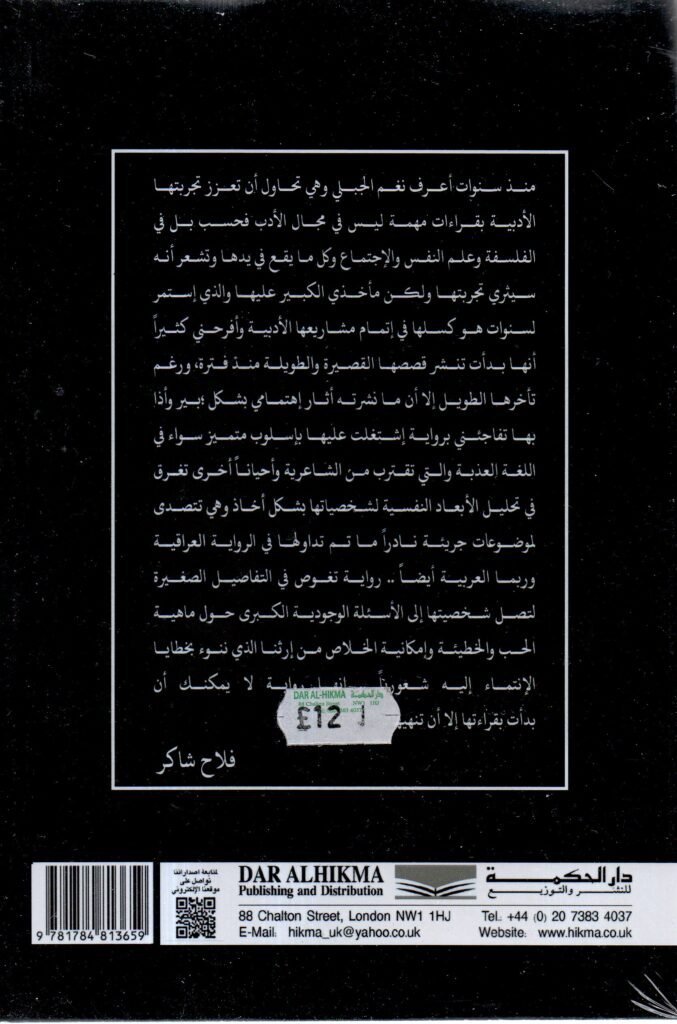 منذ سنوات أعرف نغم الجبلي وهي تحاول أن تعزز تجربتها
الأدبية بقراءات مهمة ليس في مجال الأدب فحسب بل في
الفلسفة وعلم النفس والإجتماع وكل ما يقع في يدها وتشعر أنه
سيثري تجربتها ولكن مأخذي الكبير عليها والذي إستمر
لسنوات هو كسلها في إتمام مشاريعها الأدبية وأفرحني كثيراً
أنها بدأت تنشر قصصها القصيرة والطويلة منذ فترة، ورغم
تأخرها الطويل إلا أن ما نشرته أثار إهتمامي بشكل وأذا
بها تفاجئني برواية إشتغلت عليها بإسلوب متميز سواء في
اللغة العذبة والتي تقترب من الشاعرية وأحياناً أخرى تغرق
في تحليل الأبعاد النفسية لشخصياتها بشكل أخاذ وهي تتصدى
لموضوعات جريئة نادراً ما تم تداولها في الرواية العراقية
وربما العربية أيضاً .. رواية تغوص في التفاصيل الصغيرة
لتصل شخصيتها إلى الأسئلة الوجودية الكبرى حول ماهية
الحب والخطيئة وإمكانية الخلاص من إرثنا الذي ننوء بخطايا
الإنتماء إليه لا يمكنك أن
بدأت بقراءتها إلا أن
DAR AL-HIKMA دار الحكمة
88 Chalton Street NW1 1HJ
£12
فلاح شاكر
9 781784 813659
لمتابعة اصداراتنا
تواصل على
موقعنا الإلكتروني
DAR ALHIKMA
Publishing and Distribution
دار الحكمة
للنشر والتوزيع
88 Chalton Street, London NW1 1HJ
Tel: +44 (0) 20 7383 4037
E-Mail: hikma_uk@yahoo.co.uk
Website: www.hikma.co.uk